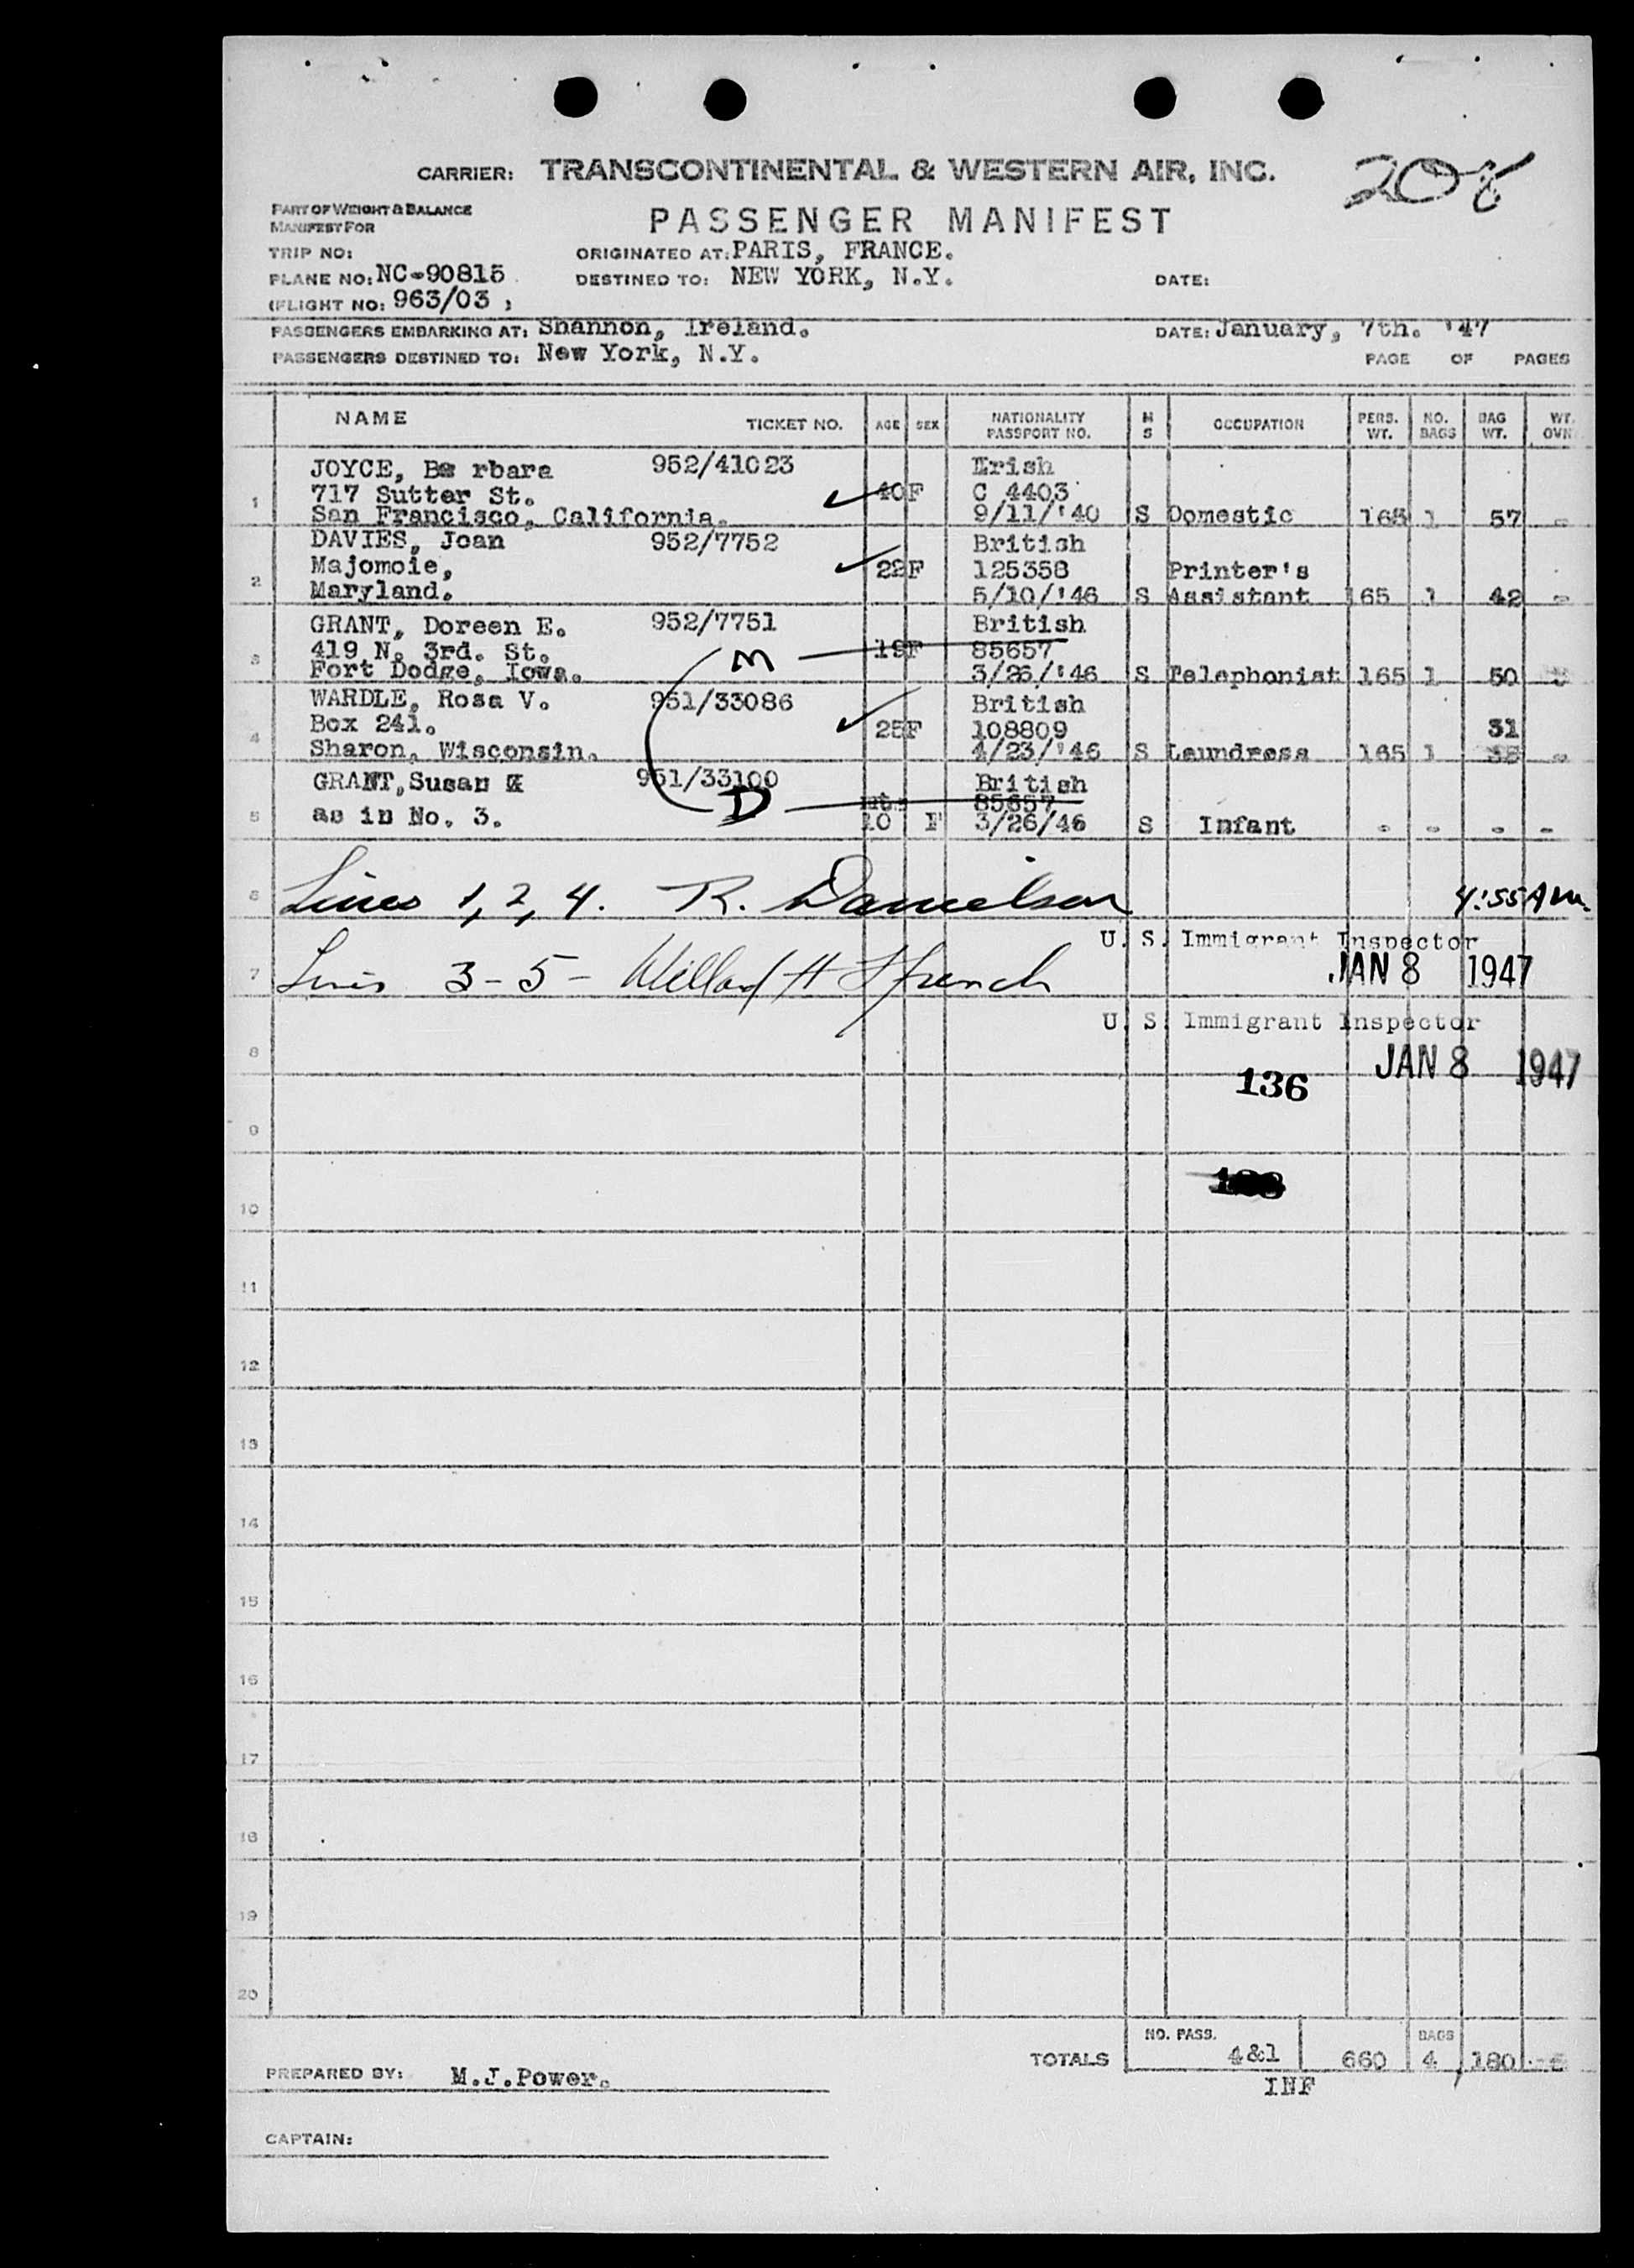 208
CARRIER: TRANSCONTINENTAL & WESTERN AIR, INC.
PART OF WEIGHT & BALANCE
MANIFEST FOR
PASSENGER MANIFEST
TRIP NO: ORIGINATED AT: PARIS, FRANCE.
PLANE NO: NC-90815 DESTINED TO: NEW YORK, N.Y. DATE:
(FLIGHT NO: 963/03 )
PASSENGERS EMBARKING AT: Shannon, Ireland. DATE: January, 7th. '47
PASSENGERS DESTINED TO: New York, N.Y. PAGE OF PAGES
NAME TICKET NO. AGE SEX NATIONALITY PASSPORT NO. M S OCCUPATION PERS. WT. NO. BAGS BAG WT. WT. OVN
JOYCE, Ba rbara 952/41023 Irish
717 Sutter St. 40 F C 4403
1 San Francisco, California. 9/11/'40 S Domestic 165 1 57 -
DAVIES, Joan 952/7752 British
Majomoie, 22 F 125358 Printer's
2 Maryland. 5/10/'46 S Assistant 165 1 42 -
GRANT, Doreen E. 952/7751 British
419 N. 3rd. St. M 19 F 85657
3 Fort Dodge, Iowa. 3/26/'46 S Telephonist 165 1 50
WARDLE, Rosa V. 951/33086 British
Box 241. 25 F 108809 31
4 Sharon, Wisconsin. 4/23/'46 S Laundress 165 1 -
GRANT, Susan 951/33100 British
D mt. 85657
5 as in No. 3. 10 F 3/26/46 S Infant - - - -
6 Lines 1, 2, 4. R. Danielson 4:55 AM.
U. S. Immigrant Inspector
7 Lines 3-5- Willard H Ffrench JAN 8 1947
U. S. Immigrant Inspector
8 JAN 8 1947
136
9
10
11
12
13
14
15
16
17
18
19
20
NO. PASS. BAGS
TOTALS 4&1 660 4 180
INF
PREPARED BY: M.J.Power.
CAPTAIN: